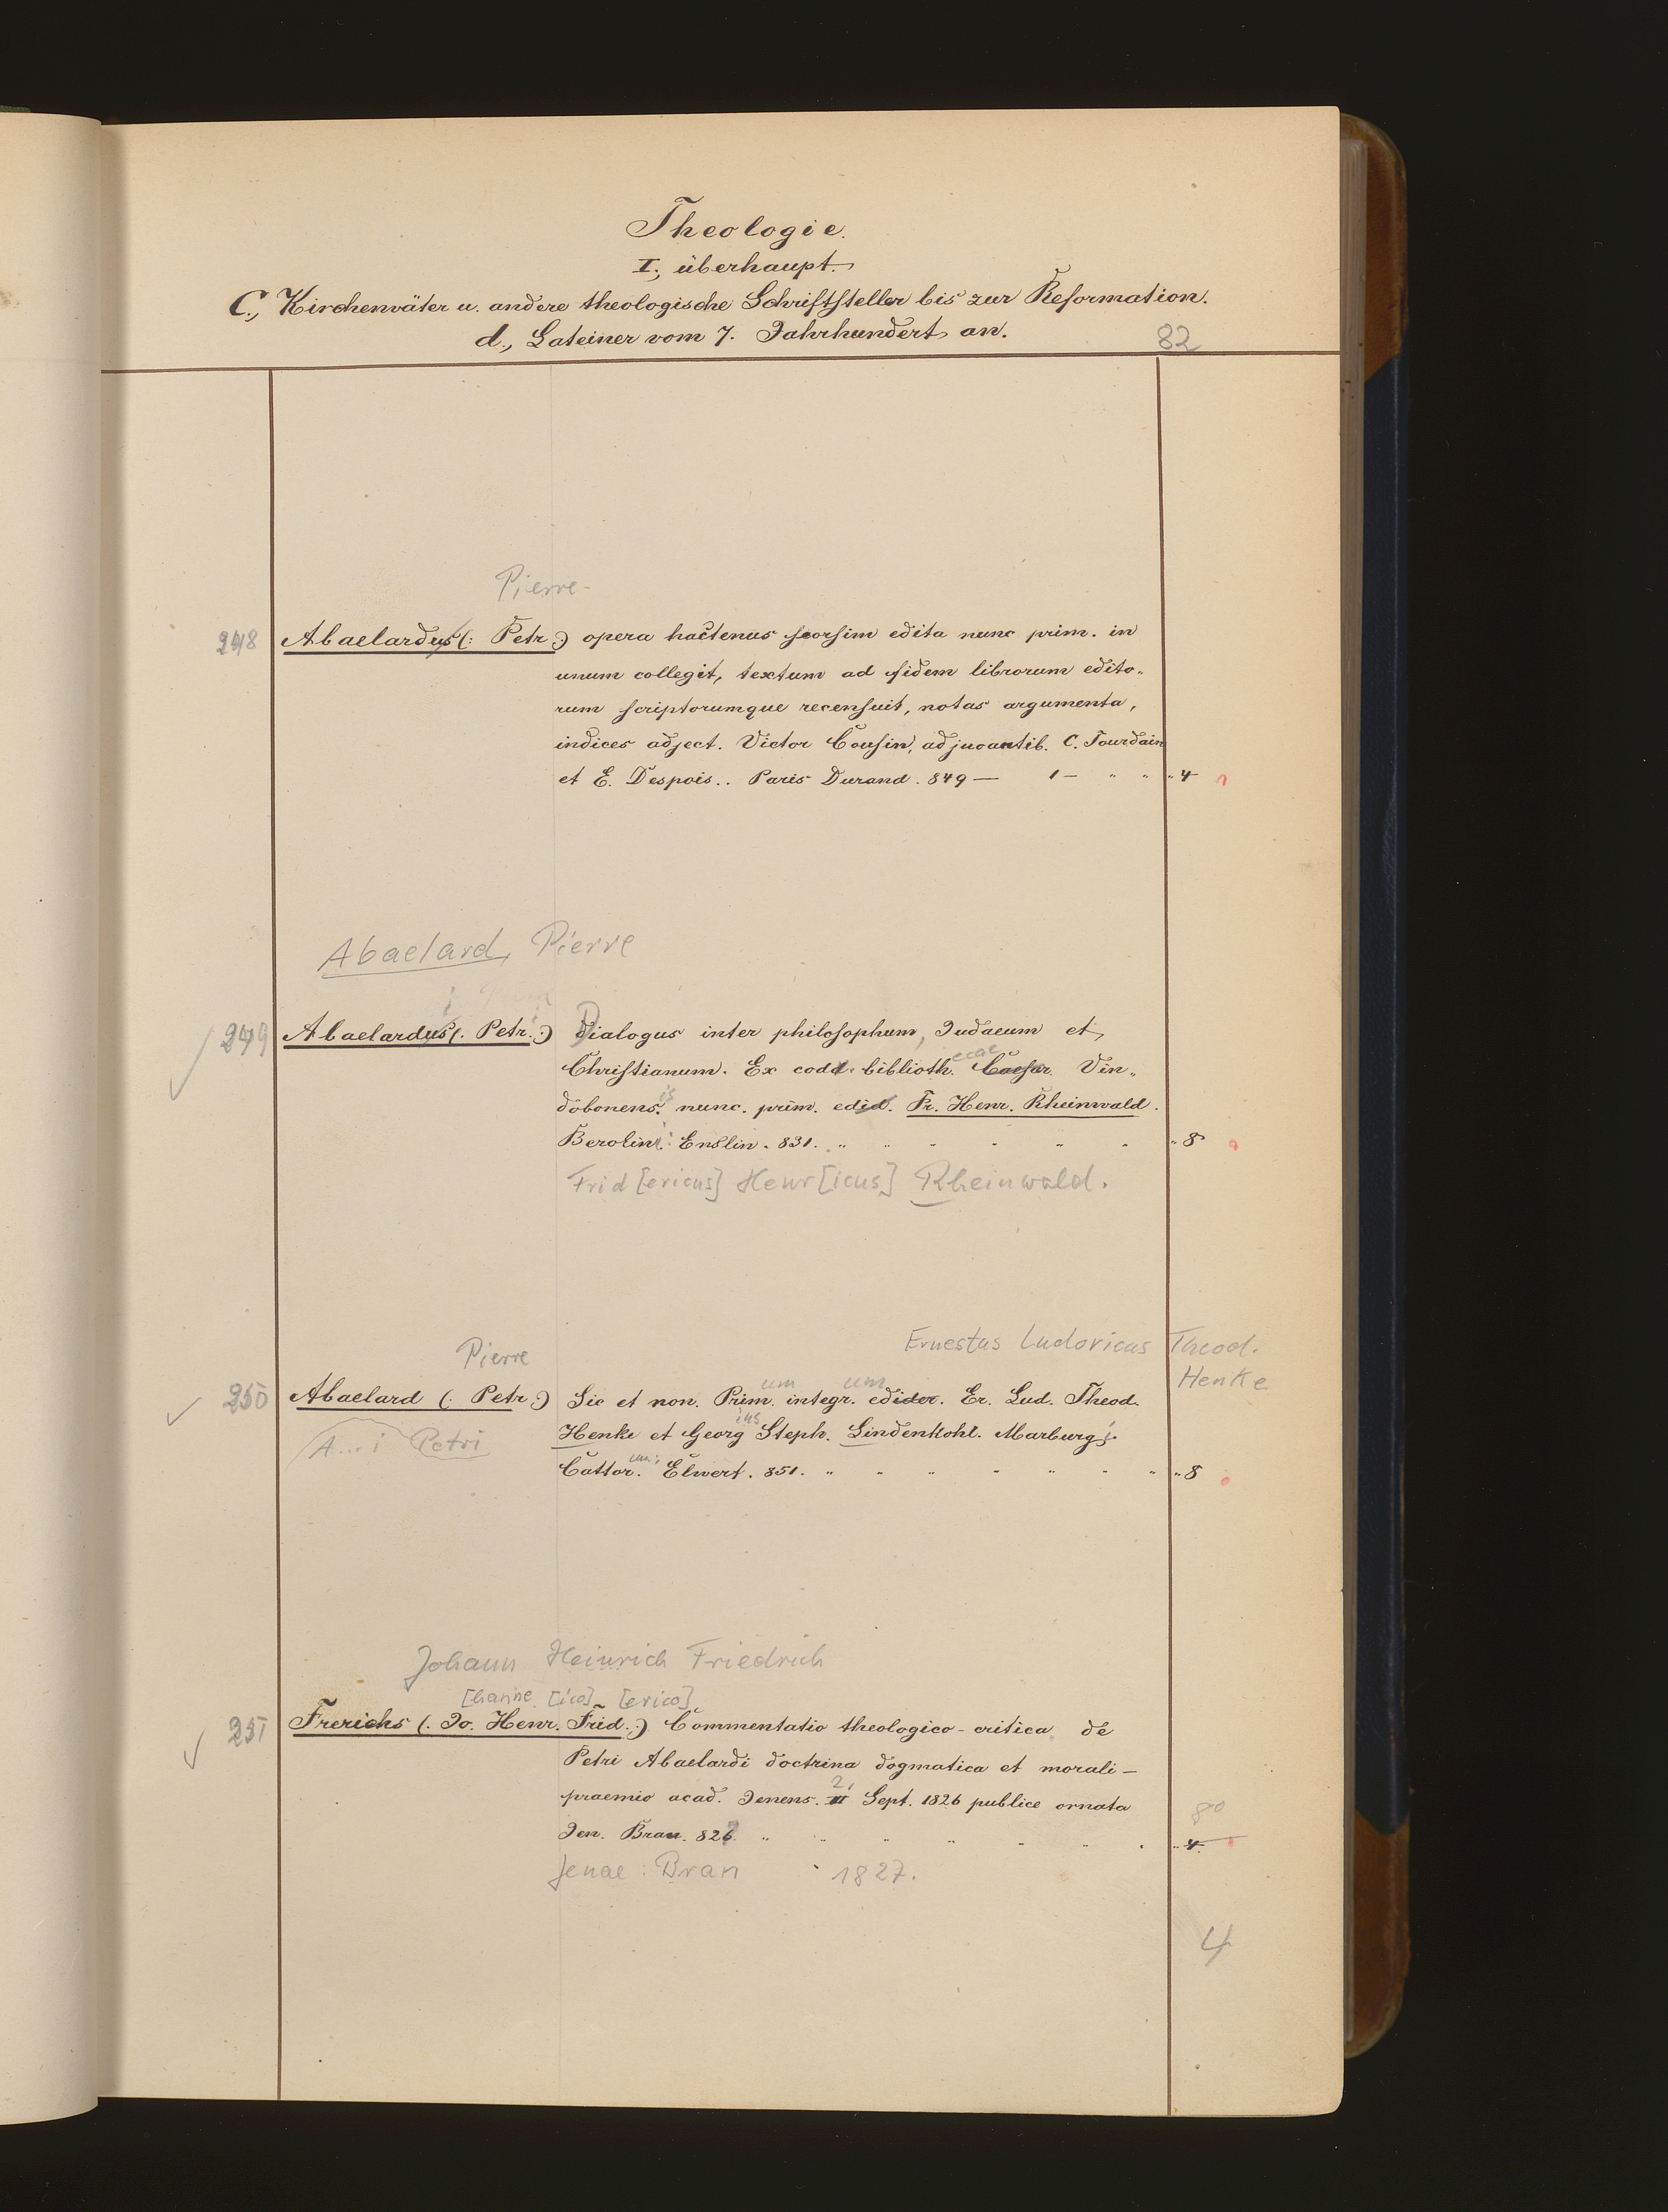 Theologie.
I., überhaupt.
C., Kirchenväter u. andere theologische Schriftsteller bis zur Reformation.
d., Lateiner vom 7. Jahrhundert an.
82
Pierre
248 Abaelardus (: Petr :) opera hactenus seorsim edita nunc prim. in
unum collegit, textum ad fidem librorum edito-
rum scriptorumque recensuit, notas argumenta,
indices adject. Victor Cousin, adjuvantib. C. Jourdain
et E. Despois.. Paris Durand. 849 — 1 — " " " 4
Abaelard, Pierre
249 Abaelardus (: Petr :) Dialogus inter philosophum, Judaeum et
ecae
Christianum. Ex codd. biblioth. Caesar. Vin-
is
dobonens. nunc. prim. edid. Fr. Henr. Rheinwald.
Berolini: Enslin. 831. " " " " " " " 8
Frid[ericus] Henr[icus] Rheinwald.
Ernestus Ludovicus Theod.
Pierre Henke
um um
250 Abaelard (: Petr :) Sic et non. Prim. integr. edider. Er. Lud. Theod.
ius
A...i Petri Henke et Georg Steph. Lindenkohl. Marburgi
um:
Cattor. Elwert. 851. " " " " " " " " 8
Johann Heinrich Friedrich
[hanne [ico] [erico]
251 Frerichs (: Jo. Henr. Frid. :) Commentatio theologico-critica de
Petri Abaelardi doctrina dogmatica et morali —
2,
praemio acad. Jenens. II Sept. 1826 publice ornata
8°
Jen. Bran. 827. " " " " " " " " 4.
Jenae: Bran 1827.
4